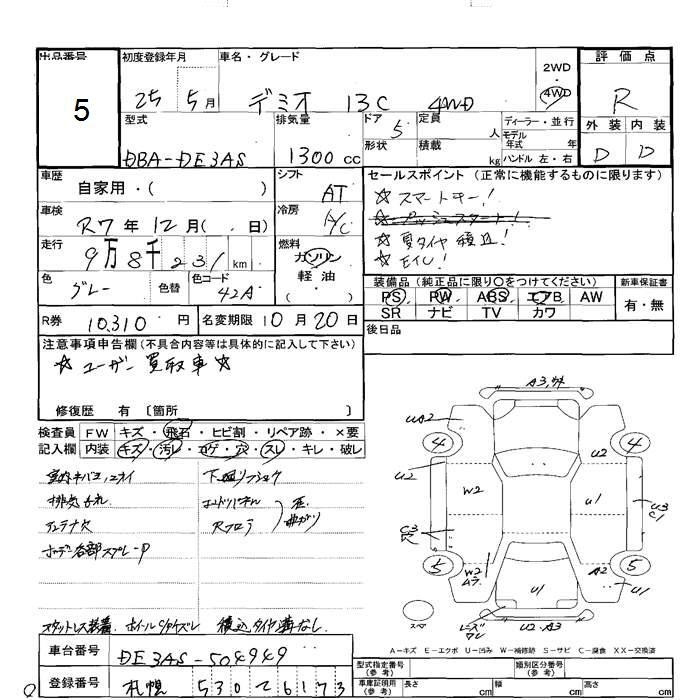 出品番号 初度登録年月 車名・グレード 2WD ・ 4WD 評価点
5 25 5月 デミオ 13C 4WD R
型式 排気量 ドア 5 定員 人 ディーラー・並行 外装 内装
DBA-DE3AS 1300cc 形状 積載 kg モデル年式 年式 ハンドル 左・右 D D
車歴 自家用・( ) シフト AT セールスポイント (正常に機能するものに限ります)
車検 R7年12月( . 日) 冷房 A/C ☆スマートキー!
☆プッシュスタート!
走行 9万8千231km 燃料 ガソリン 軽油 ( ) ☆夏タイヤ積込!
色 グレー 色替 色コード 42A
装備品 (純正品に限り○をつけてください) 新車保証書
PS. PW. ABS. エアB AW 有・無
SR ナビ TV カワ
R券 10,310円 名変期限 10月20日 後日品
注意事項申告欄 (不具合内容等は具体的に記入して下さい)
☆ユーザー買取車☆
修復歴 有 〔箇所 〕
検査員 FW キズ・飛石・ヒビ割・リペア跡・×要
記入欄 内装 キズ・汚レ・コゲ・穴・スレ・キレ・破レ
A3,
UA2 4 4
U2 U2
W2 U1 U3
C1
C3
5 W2 A2 5 U1
U1
スペア U2・A3
排気
アンテナ欠
ボデー各部スプレーP
スタットレス装着 積込タイヤ溝なし
A－キズ E－エクボ U－凹み W－補修跡 S－サビ C－腐食 XX－交換済
車台番号 DE3AS-504949 型式指定番号 (参考) 類別区分番号 (参考)
登録番号 札幌 530 2 6173 車庫証明用 (参考) 長さ cm 幅 cm 高さ cm